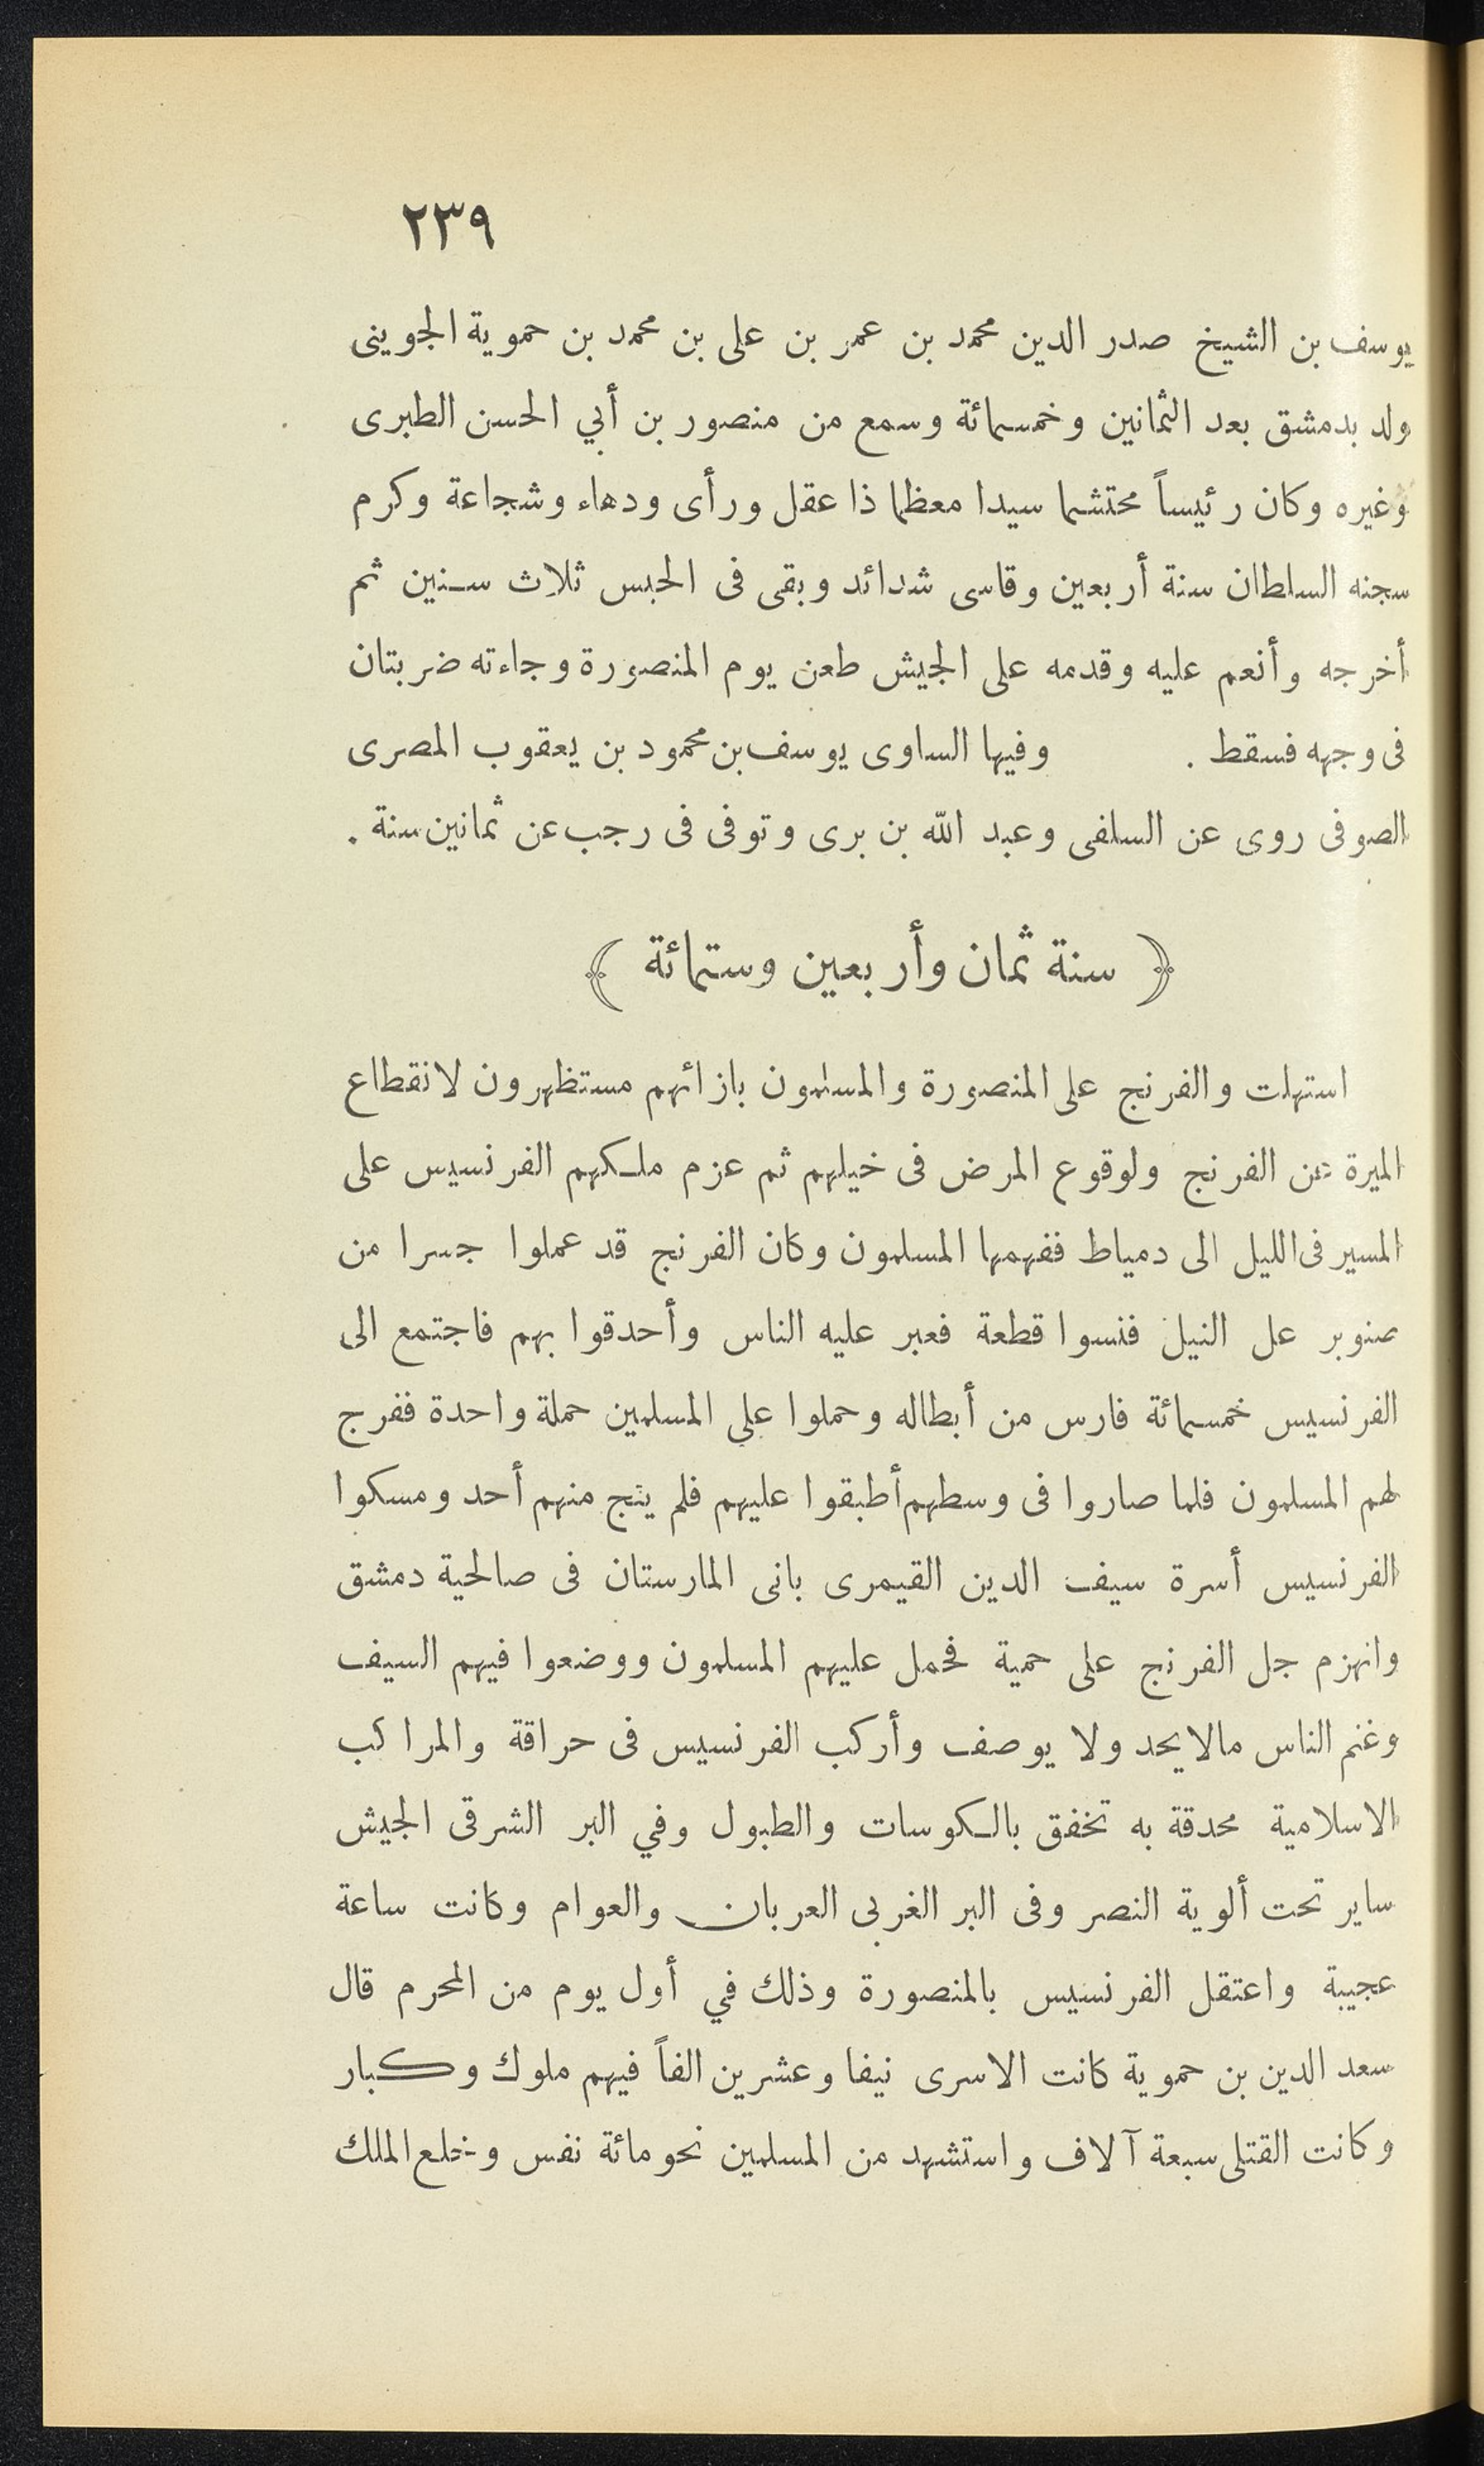 ٢٣٩
يوسف بن الشيخ صدر الدين محمد بن عمر بن على بن محمد بن حموية الجوينى
ولد بدمشق بعد الثمانين وخمسمائة وسمع من منصور بن أبي الحسن الطبرى
وغيره وكان رئيساً محتشما سيدا معظما ذا عقل ورأى ودهاء وشجاعة وكرم
سجنه السلطان سنة أربعين وقاسى شدائد وبقى فى الحبس ثلاث سنين ثم
أخرجه وأنعم عليه وقدمه على الجيش طعن يوم المنصورة وجاءته ضربتان
فى وجهه فسقط . وفيها الساوى يوسف بن محمود بن يعقوب المصرى
الصوفى روى عن السلفى وعبد الله بن برى وتوفى فى رجب عن ثمانين سنة .
﴿ سنة ثمان وأربعين وستمائة ﴾
استهلت والفرنج على المنصورة والمسلمون بازائهم مستظهرون لانقطاع
الميرة عن الفرنج ولوقوع المرض فى خيلهم ثم عزم ملكهم الفرنسيس على
المسير فى الليل الى دمياط ففهمها المسلمون وكان الفرنج قد عملوا جسرا من
صنوبر على النيل فنسوا قطعة فعبر عليه الناس وأحدقوا بهم فاجتمع الى
الفرنسيس خمسمائة فارس من أبطاله وحملوا على المسلمين حملة واحدة ففرج
لهم المسلمون فلما صاروا فى وسطهم أطبقوا عليهم فلم ينج منهم أحد ومسكوا
الفرنسيس أسرة سيف الدين القيمرى بانى المارستان فى صالحية دمشق
وانهزم جل الفرنج على حمية فحمل عليهم المسلمون ووضعوا فيهم السيف
وغنم الناس مالايحد ولا يوصف وأركب الفرنسيس فى حراقة والمراكب
الاسلامية محدقة به تخفق بالكوسات والطبول وفي البر الشرقى الجيش
ساير تحت ألوية النصر وفى البر الغربى العربان والعوام وكانت ساعة
عجيبة واعتقل الفرنسيس بالمنصورة وذلك في أول يوم من المحرم قال
سعد الدين بن حموية كانت الاسرى نيفا وعشرين الفاً فيهم ملوك وكبار
وكانت القتلى سبعة آلاف واستشهد من المسلمين نحو مائة نفس وخلع الملك